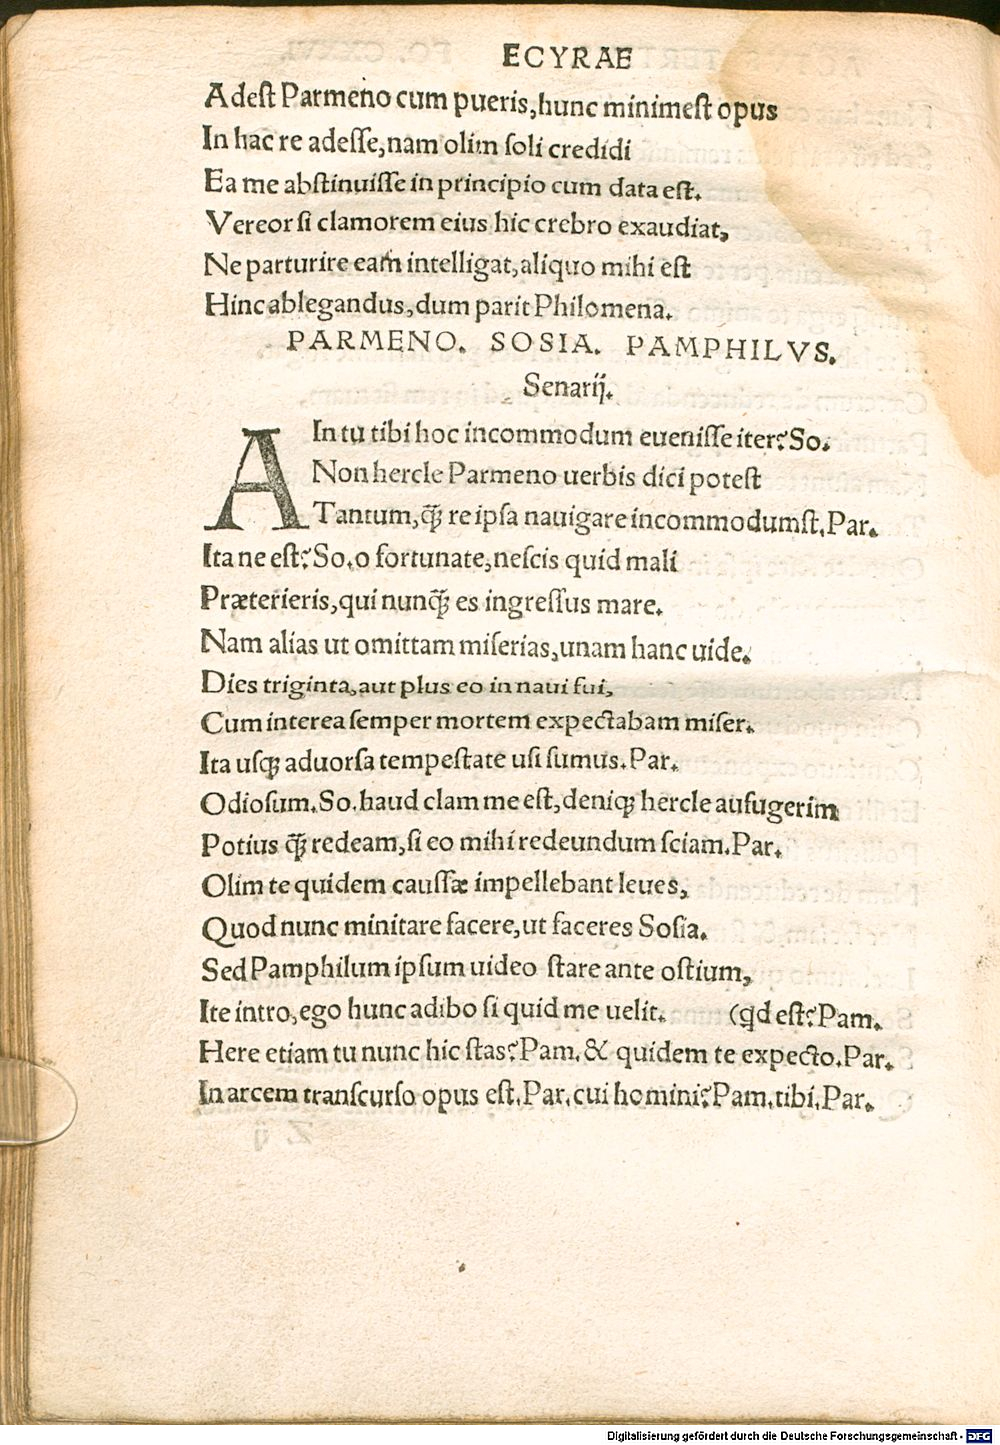 ECYRAE
Adeſt Parmeno cum pueris,hunc minimeſt opus
In hac re adeſſe,nam olim ſoli credidi
Ea me abſtinuiſſe in principio cum data eſt.
Vereor ſi clamorem eius hic crebro exaudiat,
Ne parturire eam intelligat,aliquo mihi eſt
Hinc ablegandus,dum parit Philomena.
PARMENO. SOSIA. PAMPHILVS.
Senarij.
AIn tu tibi hoc incommodum eueniſſe iter? So.
Non hercle Parmeno uerbis dici poteſt
Tantum,q̃ꝫ re ipſa nauigare incommodumſt.Par.
Ita ne eſt? So.o fortunate,neſcis quid mali
Præterieris,qui nunq̃ꝫ es ingreſſus mare.
Nam alias ut omittam miſerias,unam hanc uide.
Dies triginta,aut plus eo in naui fui,
Cum interea ſemper mortem expectabam miſer.
Ita uſqꝫ aduorſa tempeſtate uſi ſumus.Par.
Odioſum.So.haud clam me eſt,deniqꝫ hercle aufugerim
Potius q̃ꝫ redeam,ſi eo mihi redeundum ſciam.Par.
Olim te quidem cauſſæ impellebant leues,
Quod nunc minitare facere,ut faceres Soſia.
Sed Pamphilum ipſum uideo ſtare ante oſtium,
Ite intro,ego hunc adibo ſi quid me uelit. (qd eſt? Pam.
Here etiam tu nunc hic ſtas? Pam.& quidem te expecto.Par.
In arcem tranſcurſo opus eſt.Par.cui homini? Pam.tibi.Par.
Digitalisierung gefördert durch die Deutsche Forschungsgemeinschaft - DFG